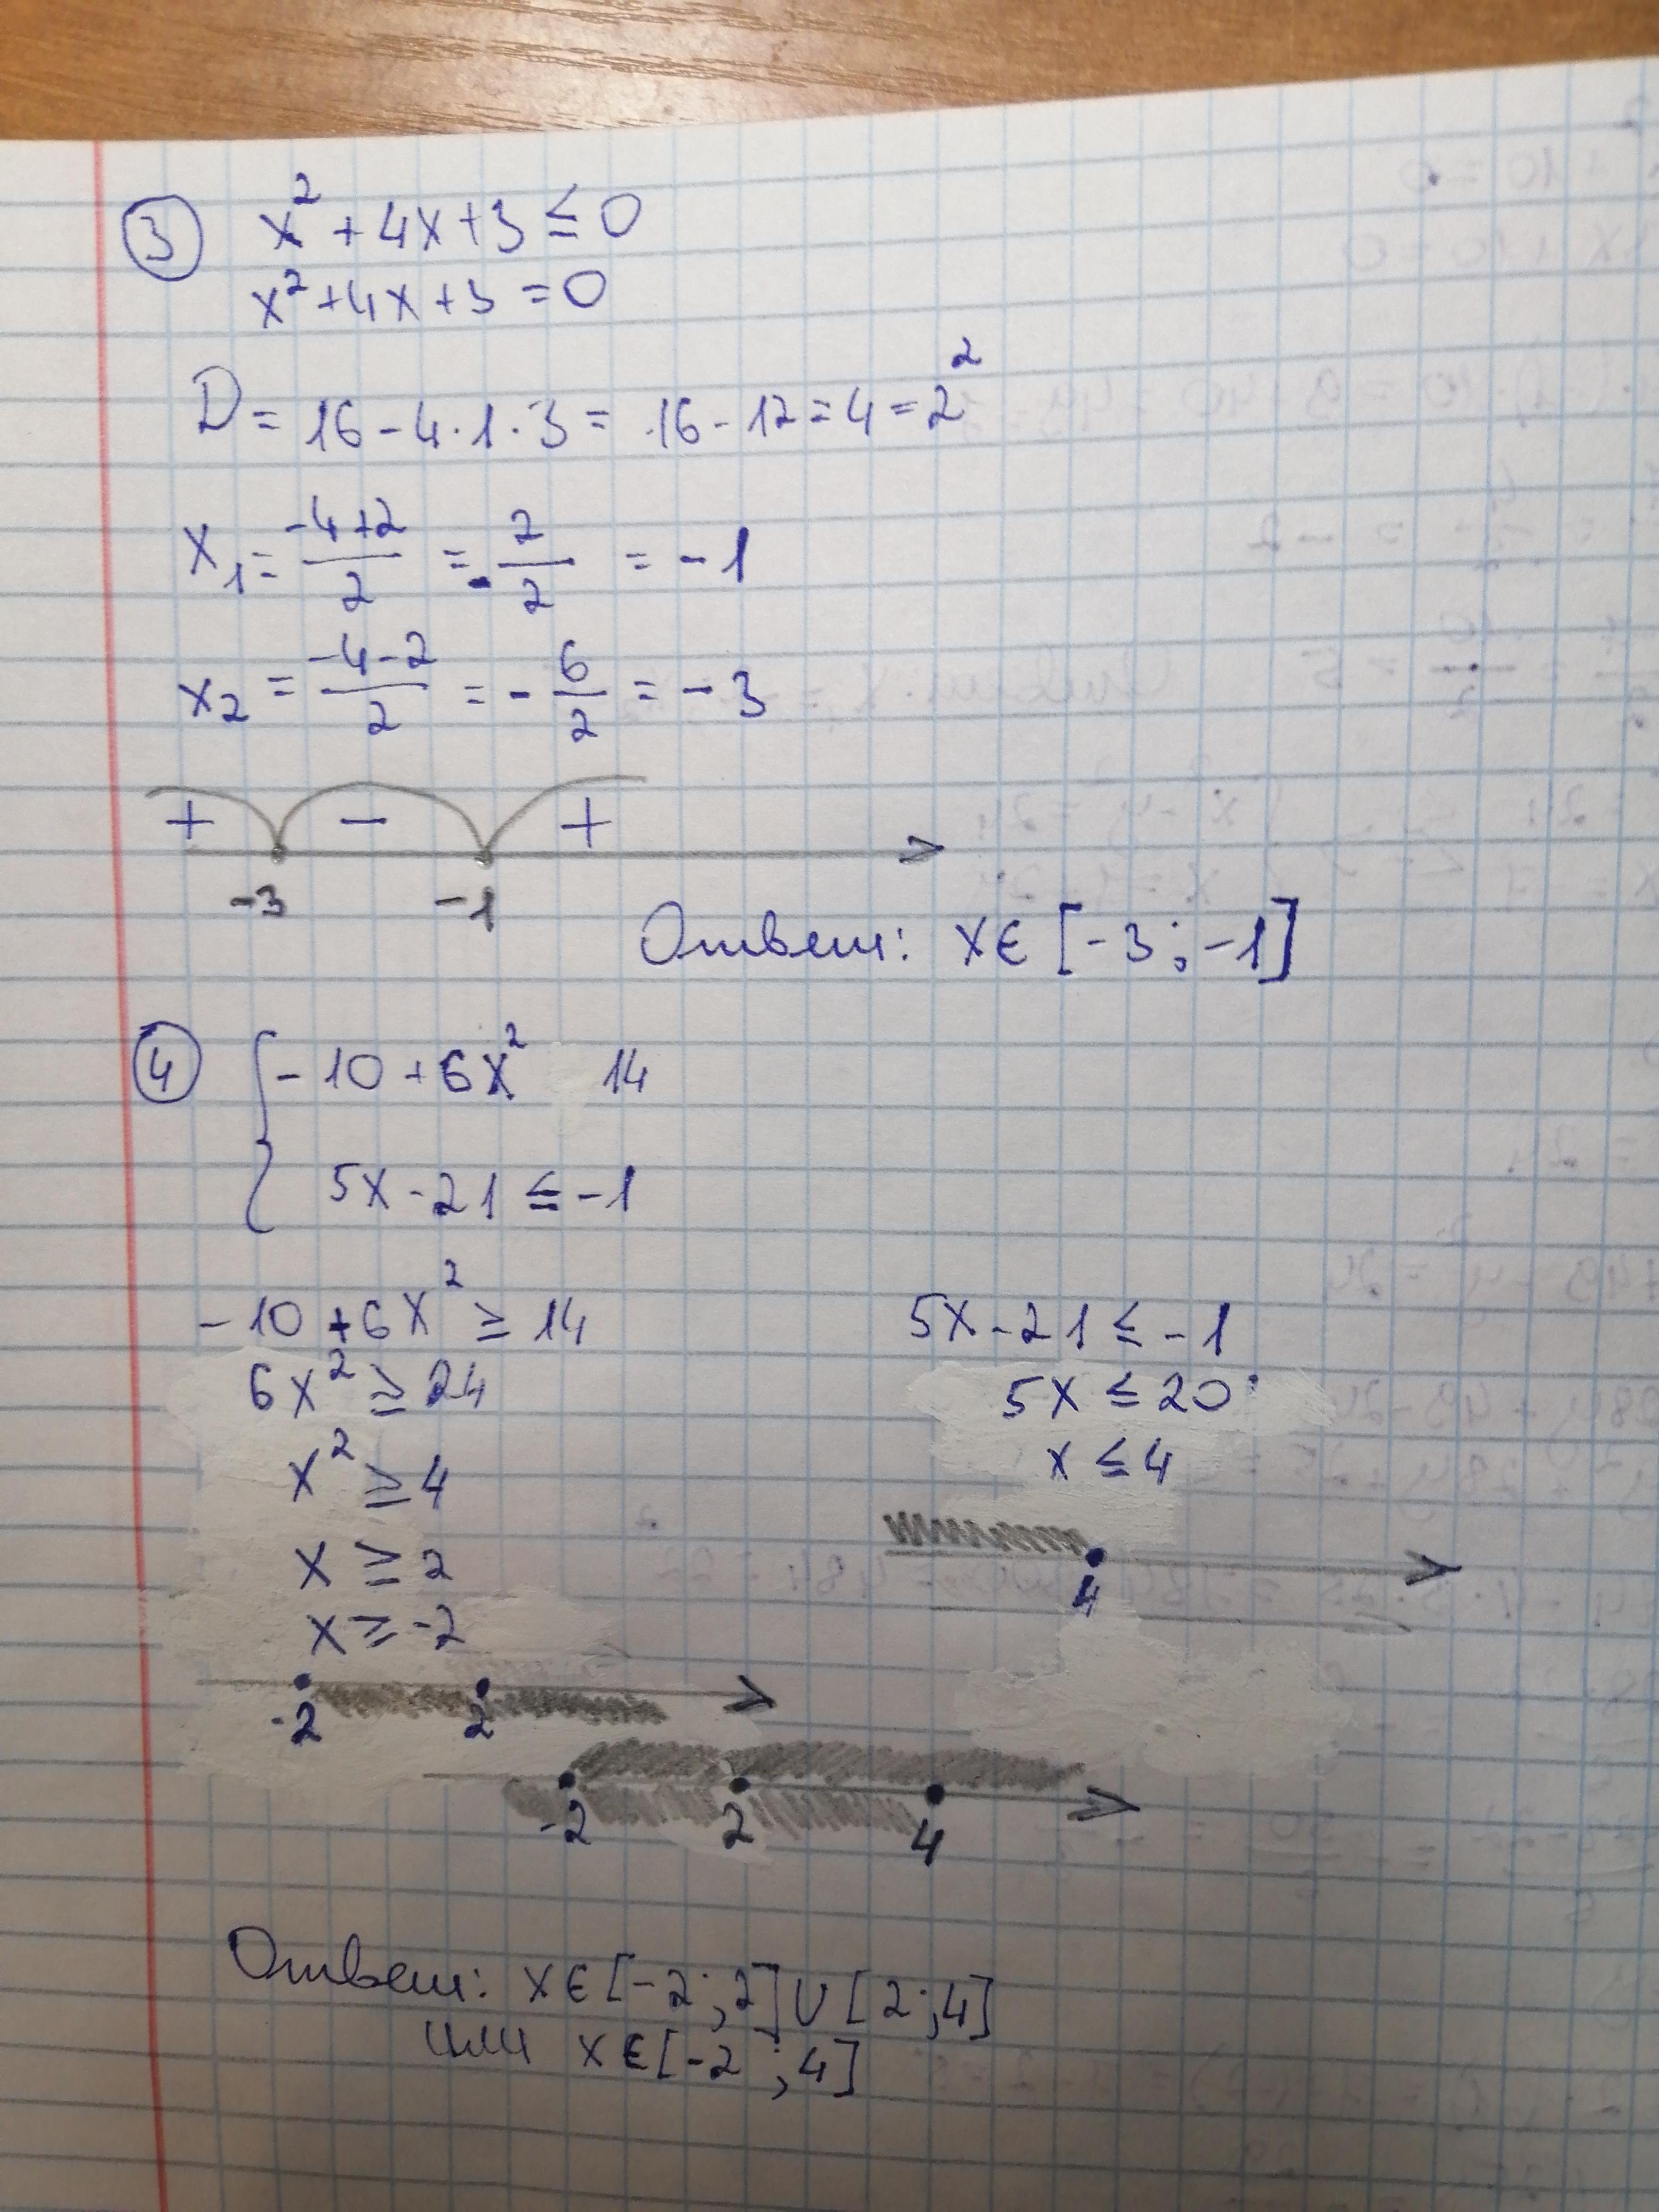 ③ x² + 4x + 3 ≤ 0
x² + 4x + 3 = 0
D = 16 - 4 · 1 · 3 = 16 - 12 = 4 = 2²
x₁ = (-4+2)/2 = -2/2 = -1
x₂ = (-4-2)/2 = -6/2 = -3
+ - +
-3 -1
Ответ: x ∈ [-3; -1]
④ { -10 + 6x² 14
5x - 21 ≤ -1
-10 + 6x² ≥ 14 5x - 21 ≤ -1
6x² ≥ 24 5x ≤ 20
x² ≥ 4 x ≤ 4
x ≥ 2 4
x ≥ -2
-2 2
-2 2 4
Ответ: x ∈ [-2; 2] ∪ [2; 4]
или x ∈ [-2; 4]